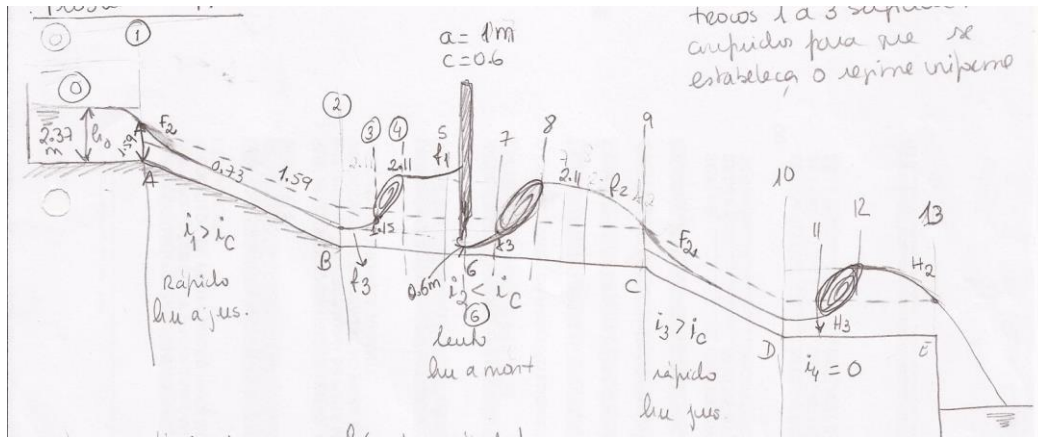 a = 1m
c = 0.6
troços 1 a 3 suficie
cumpridos para que se
estabeleça o regime uniforme
0
1
0
2.37
m
h₀
1.59
F2
0.73
1.59
A
i₁ > i_c
Rápido
hu a jus.
B
2
3
4
2.11
1.15
f3
5
f1
0.6m
6
i₂ < i_c
6
lento
hu a mont
7
f3
8
7
2.11
f2
9
C
F2
i₃ > i_c
rápido
hu jus.
10
D
11
12
13
H3
H2
E
i₄ = 0